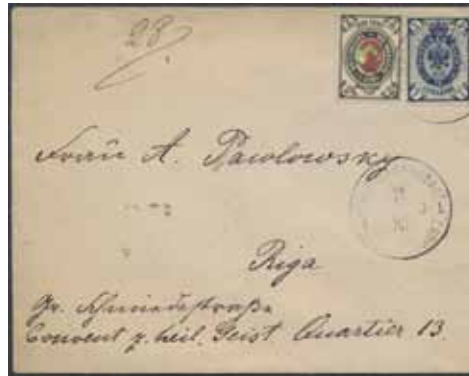 28
Frau A. Pawlowsky
Riga
Gr. Schmiedestraße
Convent z. heil. Geist Quartier 13.